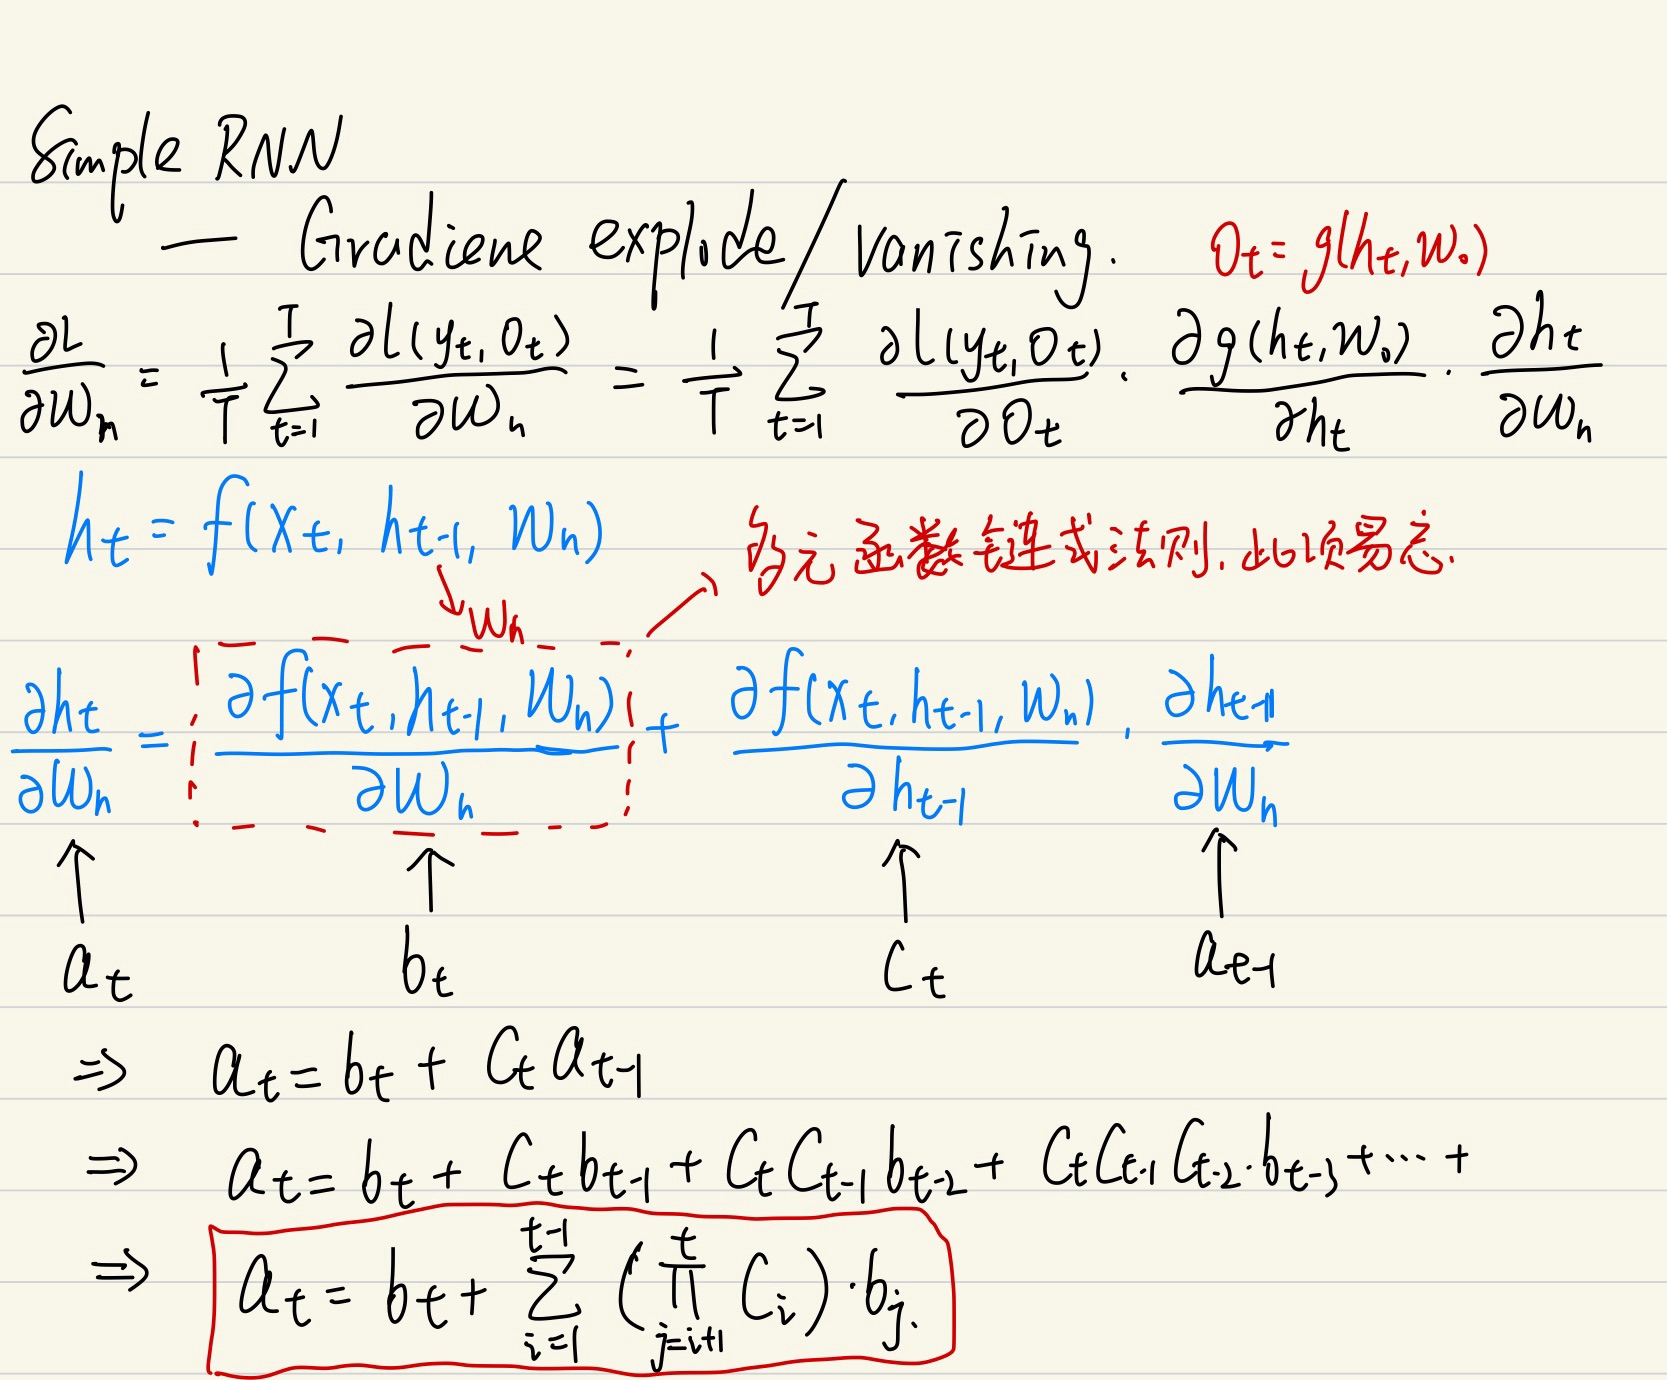 Simple RNN
— Gradiene explode/vanishing.
O_t = g(h_t, W_o)
∂L/∂W_h = 1/T Σ_{t=1}^{T} ∂l(y_t, O_t)/∂W_h = 1/T Σ_{t=1}^{T} ∂l(y_t, O_t)/∂O_t · ∂g(h_t, W_o)/∂h_t · ∂h_t/∂W_h
h_t = f(x_t, h_{t-1}, W_h)
多元函数链式法则, 此项易忘.
W_h
∂h_t/∂W_h = ∂f(x_t, h_{t-1}, W_h)/∂W_h + ∂f(x_t, h_{t-1}, W_h)/∂h_{t-1} · ∂h_{t-1}/∂W_h
↑ ↑ ↑ ↑
a_t b_t c_t a_{t-1}
⇒ a_t = b_t + C_t a_{t-1}
⇒ a_t = b_t + C_t b_{t-1} + C_t C_{t-1} b_{t-2} + C_t C_{t-1} C_{t-2} · b_{t-3} + ··· +
⇒ a_t = b_t + Σ_{i=1}^{t-1} (∏_{j=i+1}^{t} C_i) · b_j.